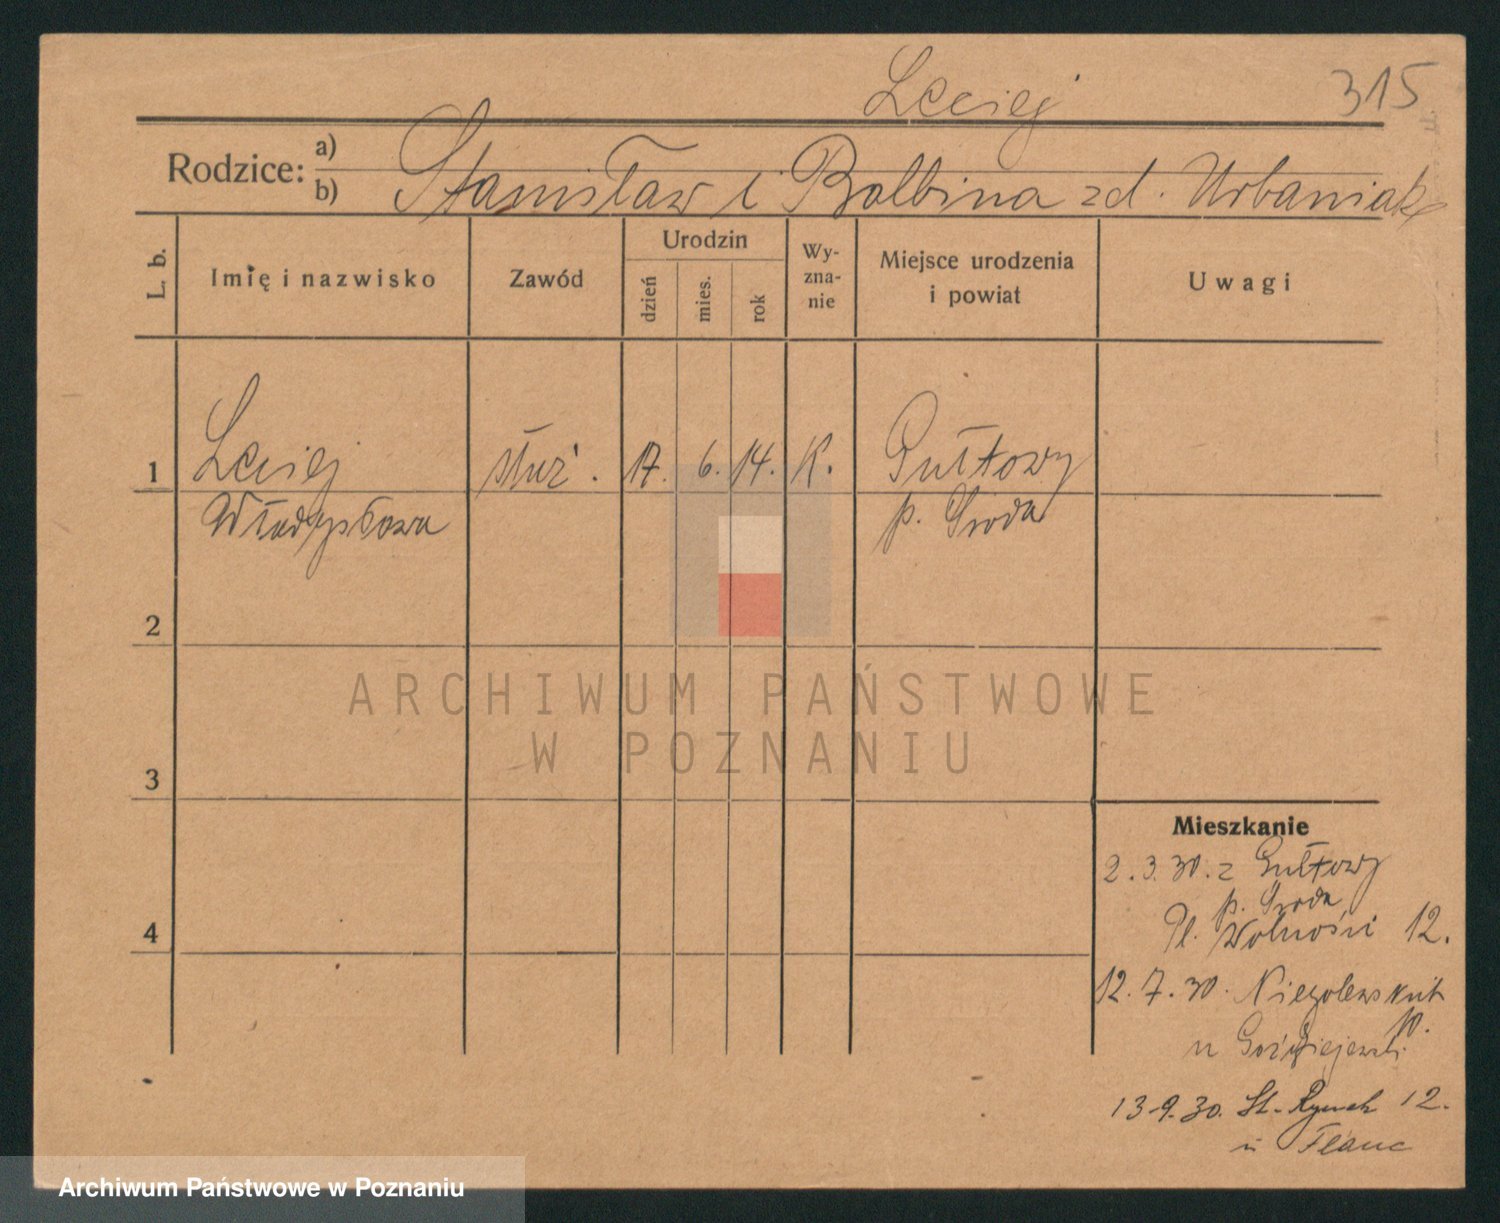 Leciej 315
Rodzice: a)
b) Stanisław i Balbina zd. Urbaniak
L. b.
Imię i nazwisko
Zawód
Urodzin
dzień
mies.
rok
Wy-
zna-
nie
Miejsce urodzenia
i powiat
Uwagi
1 Leciej służ. 17. 6. 14. K. Gułtowy
Władysława p. Środa
2
3
4
ARCHIWUM PAŃSTWOWE
W POZNANIU
Mieszkanie
2.3.30. z Gułtowy
p. Środa
Pl. Wolności 12.
12.7.30. Niegolewskich
10.
u
13.9.30. St. Rynek 12.
u Flanc
Archiwum Państwowe w Poznaniu